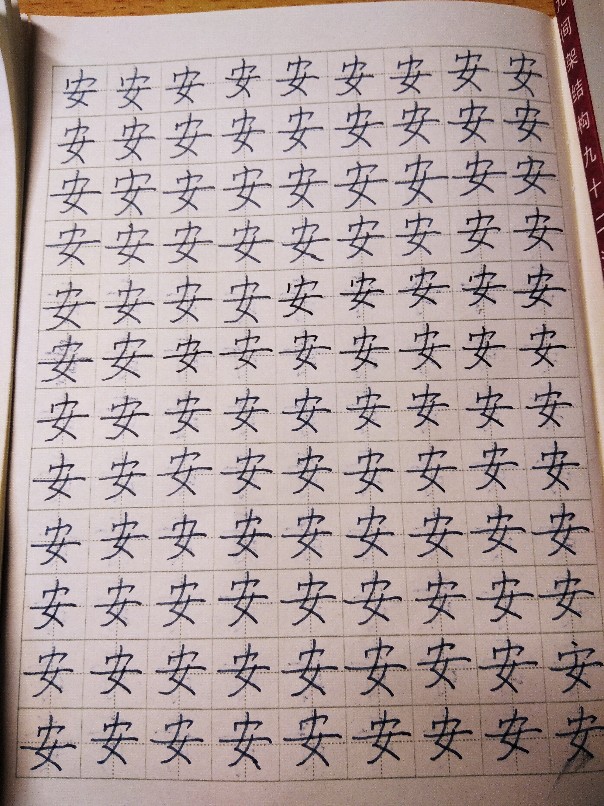 安安安安安安安安安
安安安安安安安安安
安安安安安安安安安
安安安安安安安安安
安安安安安安安安安
安安安安安安安安安
安安安安安安安安安
安安安安安安安安安
安安安安安安安安安
安安安安安安安安安
安安安安安安安安安
安安安安安安安安安
间架结构九十二